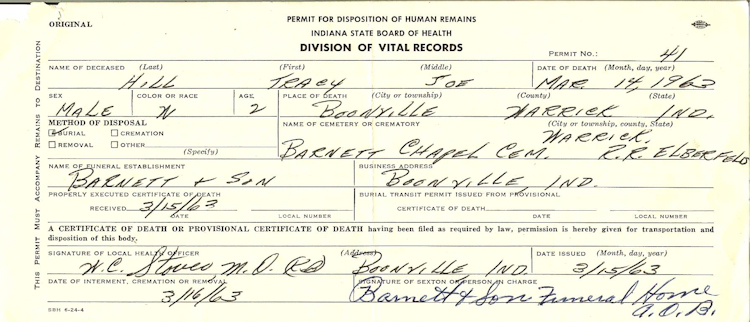 ORIGINAL
PERMIT FOR DISPOSITION OF HUMAN REMAINS
INDIANA STATE BOARD OF HEALTH
DIVISION OF VITAL RECORDS
PERMIT NO.: 41
NAME OF DECEASED (Last) (First) (Middle) DATE OF DEATH (Month, day, year)
HILL TRACY JOE MAR. 14, 1963
SEX COLOR OR RACE AGE PLACE OF DEATH (City or township) (County) (State)
MALE 2 BOONVILLE WARRICK IND.
METHOD OF DISPOSAL NAME OF CEMETERY OR CREMATORY (City or township, county, State)
BURIAL CREMATION WARRICK.
REMOVAL OTHER BARNETT CHAPEL CEM. R.R. ELBERFELD
(Specify)
NAME OF FUNERAL ESTABLISHMENT BUSINESS ADDRESS
BARNETT & SON BOONVILLE, IND.
PROPERLY EXECUTED CERTIFICATE OF DEATH BURIAL TRANSIT PERMIT ISSUED FROM PROVISIONAL
RECEIVED 3/15/63 CERTIFICATE OF DEATH
DATE LOCAL NUMBER DATE LOCAL NUMBER
A CERTIFICATE OF DEATH OR PROVISIONAL CERTIFICATE OF DEATH having been filed as required by law, permission is hereby given for transportation and
disposition of this body.
SIGNATURE OF LOCAL HEALTH OFFICER (Address) DATE ISSUED (Month, day, year)
W.C. M.D. BOONVILLE, IND. 3/15/63
DATE OF INTERMENT, CREMATION OR REMOVAL SIGNATURE OF SEXTON OR PERSON IN CHARGE
3/16/63 Barnett & Son Funeral Home
A.O.B.
SBH 6-24-4
THIS PERMIT MUST ACCOMPANY REMAINS TO DESTINATION